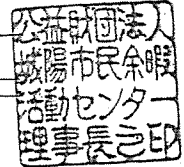 公益財団法人
城陽市民余暇
活動センター
理事長之印